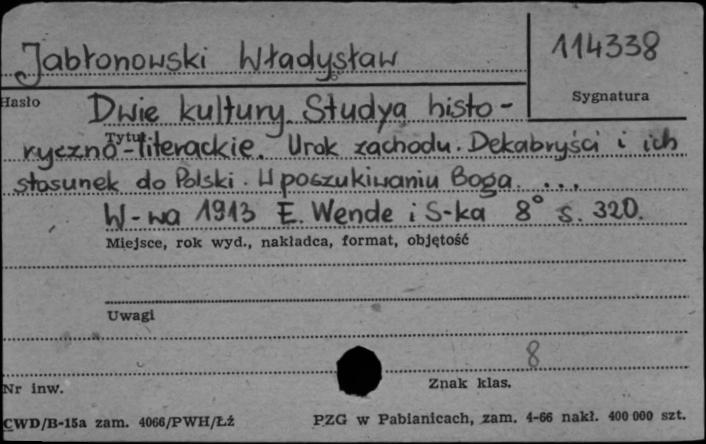 Jabłonowski Władysław
114338
Hasło
Sygnatura
Dwie kultury. Studya histo-
Tytuł
ryczno-literackie. Urok zachodu. Dekabryści i ich
stosunek do Polski. W poszukiwaniu Boga. ...
W-wa 1913 E. Wende i S-ka 8° s. 320.
Miejsce, rok wyd., nakładca, format, objętość
Uwagi
8
Nr inw.
Znak klas.
CWD/B-15a zam. 4066/PWH/Łż
PZG w Pabianicach, zam. 4-66 nakł. 400 000 szt.